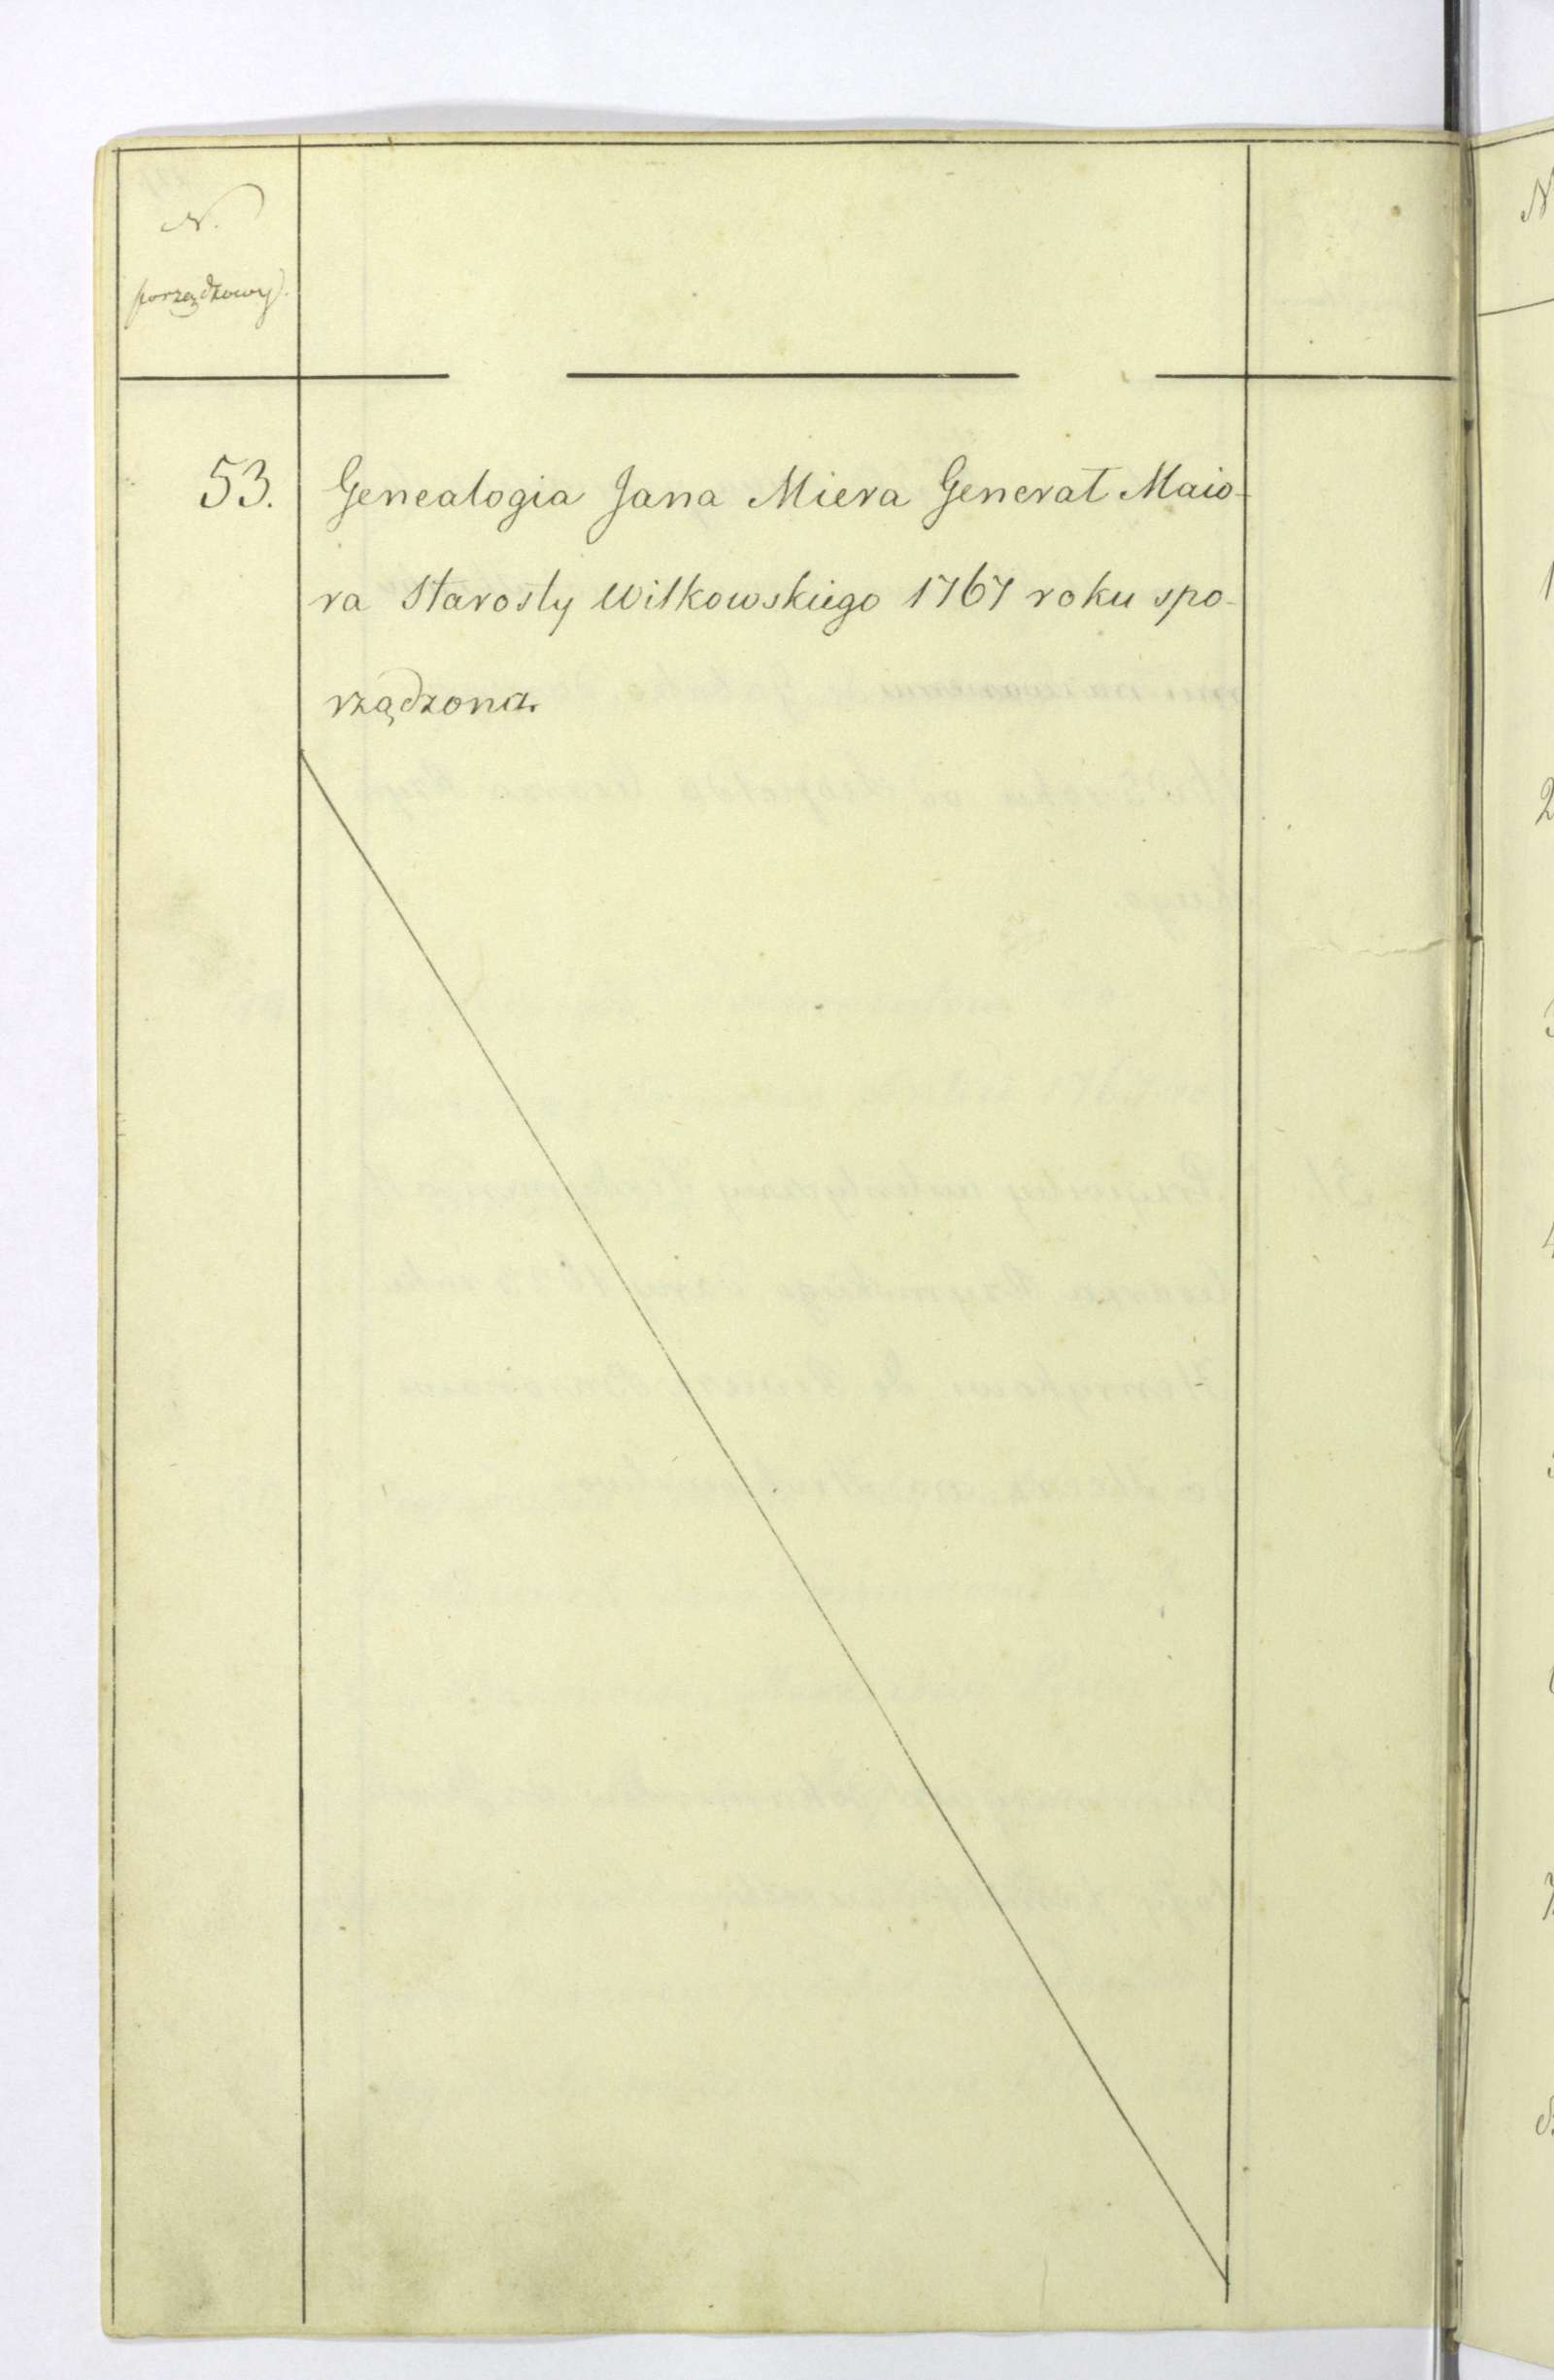 N.
porządkowy.
53. Genealogia Jana Miera Generał Maio-
ra Starosty Witkowskiego 1767 roku spo-
rządzona.
N
1
2
3
4
7
8.